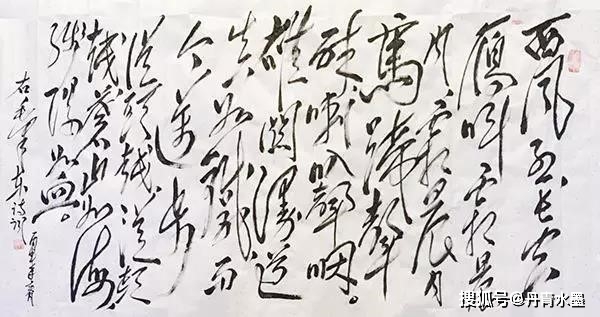 西風烈长空
雁叫霜晨
月霜晨月
馬蹄聲
碎喇叭聲咽。
雄関漫道
真如鐵而
今邁步
從頭越從頭
越蒼山如海
殘陽如血。
右毛澤東诗词
搜狐号@丹青水墨